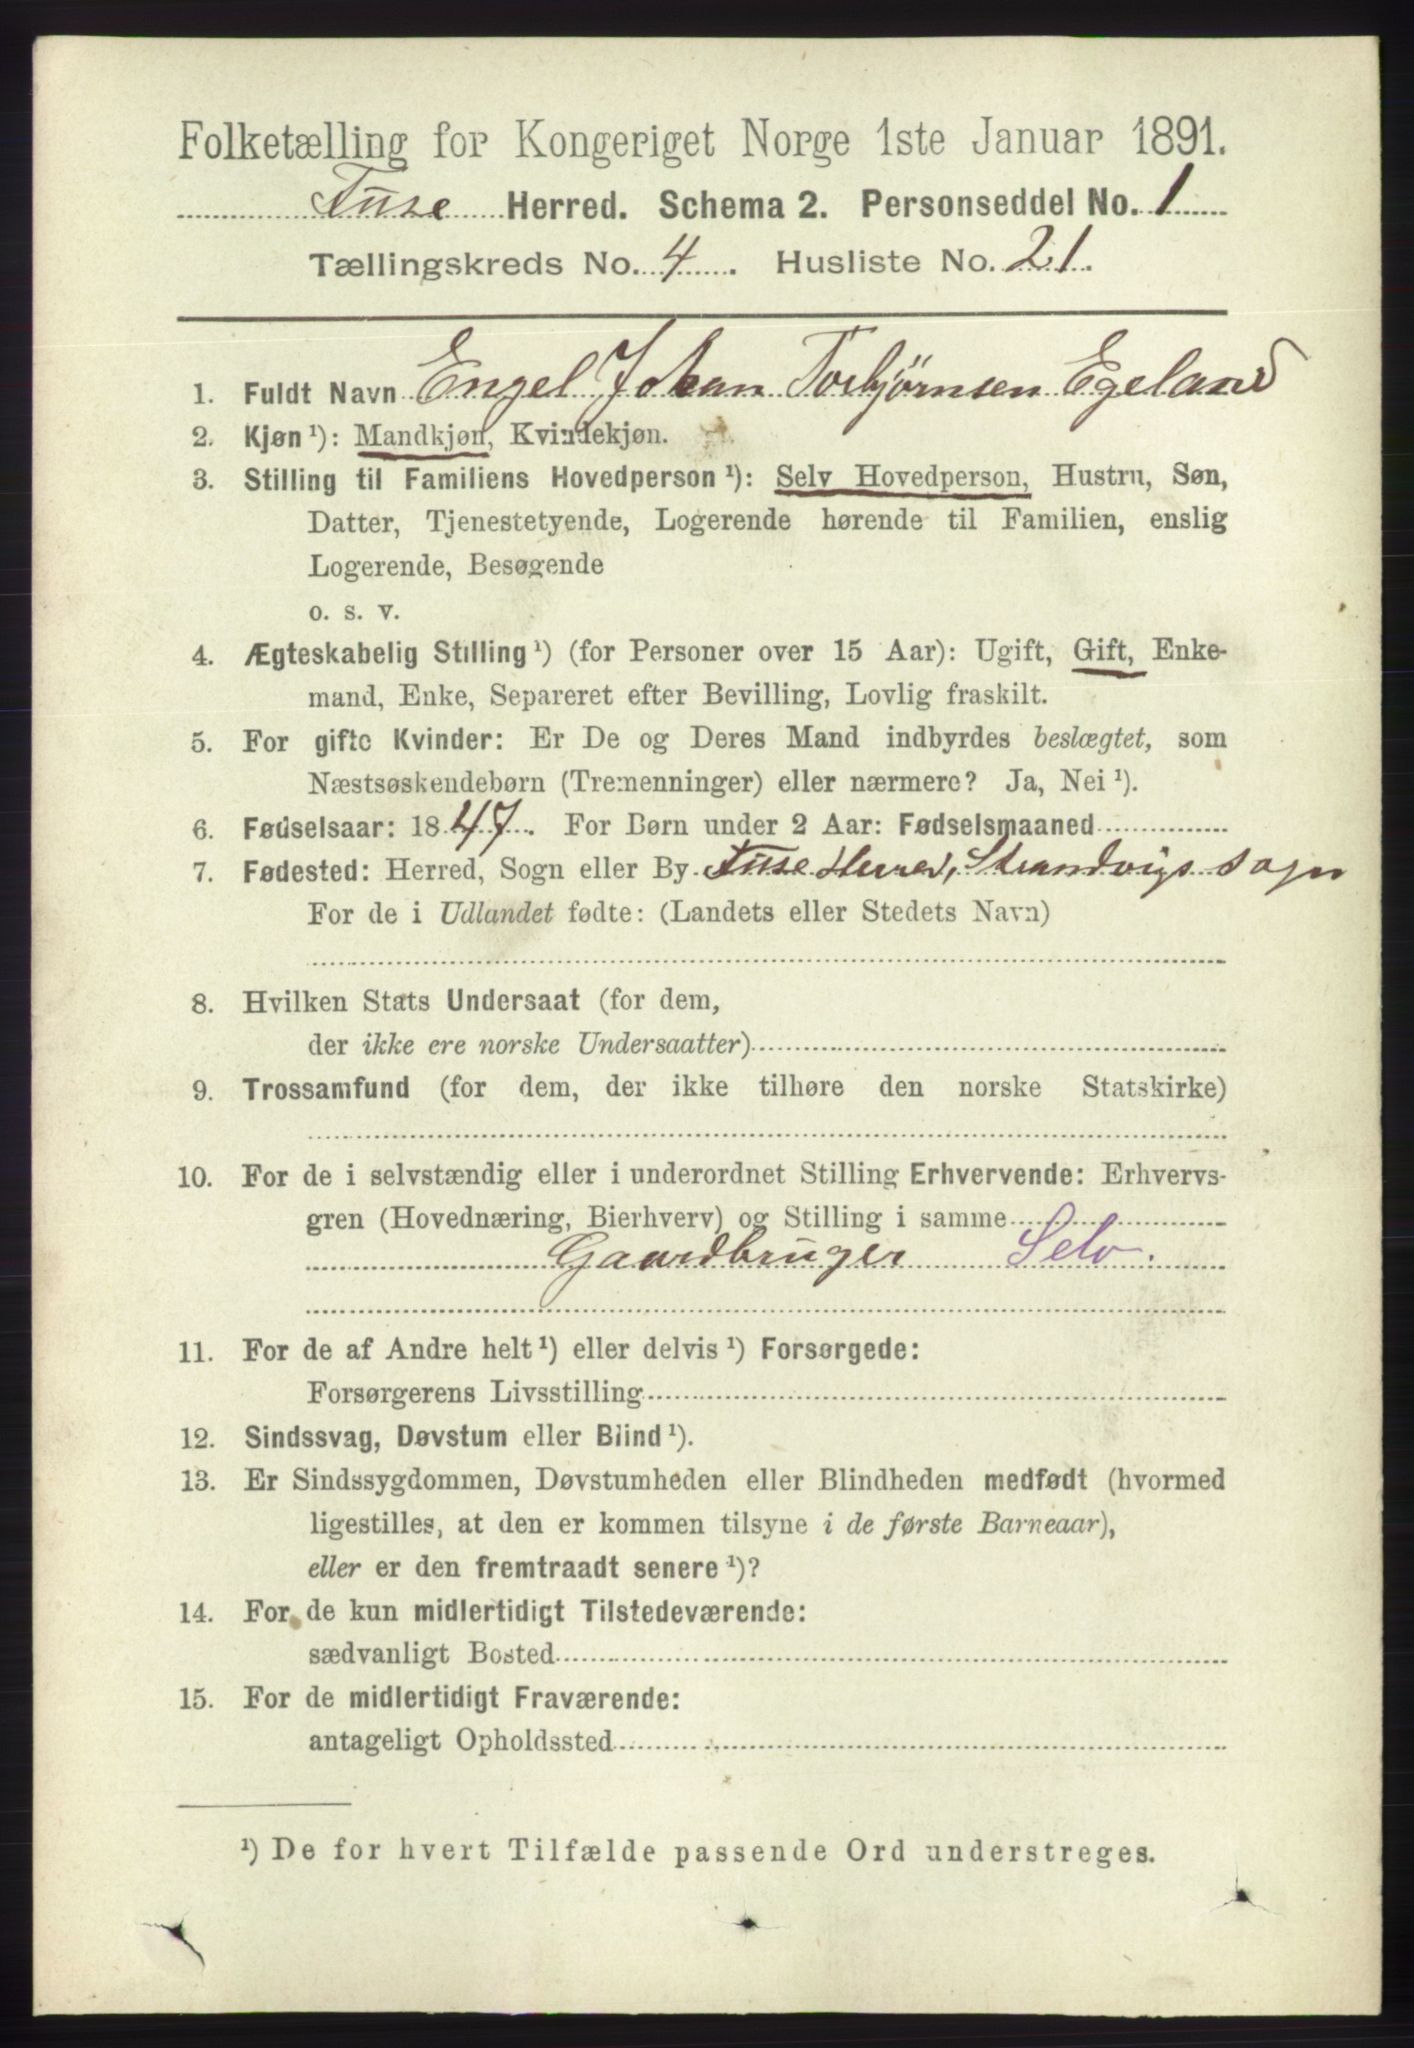 Folketælling for Kongeriget Norge 1ste Januar 1891.
Fuse Herred. Schema 2. Personseddel No. 1
Tællingskreds No. 4. Husliste No. 21.
1. Fuldt Navn Engel Johan Torbjørnsen Egeland
2. Kjøn ¹): Mandkjøn, Kvindekjøn.
3. Stilling til Familiens Hovedperson ¹): Selv Hovedperson, Hustru, Søn,
Datter, Tjenestetyende, Logerende hørende til Familien, enslig
Logerende, Besøgende
o. s. v.
4. Ægteskabelig Stilling ¹) (for Personer over 15 Aar): Ugift, Gift, Enke-
mand, Enke, Separeret efter Bevilling, Lovlig fraskilt.
5. For gifte Kvinder: Er De og Deres Mand indbyrdes beslægtet, som
Næstsøskendebørn (Tremenninger) eller nærmere? Ja, Nei ¹).
6. Fødselsaar: 1847. For Børn under 2 Aar: Fødselsmaaned
7. Fødested: Herred, Sogn eller By Fuse Herred, Strandvigs Sogn
For de i Udlandet fødte: (Landets eller Stedets Navn)
8. Hvilken Stats Undersaat (for dem,
der ikke ere norske Undersaatter)
9. Trossamfund (for dem, der ikke tilhøre den norske Statskirke)
10. For de i selvstændig eller i underordnet Stilling Erhvervende: Erhvervs-
gren (Hovednæring, Bierhverv) og Stilling i samme
Gaardbruger Selv.
11. For de af Andre helt ¹) eller delvis ¹) Forsørgede:
Forsørgerens Livsstilling
12. Sindssvag, Døvstum eller Blind ¹).
13. Er Sindssygdommen, Døvstumheden eller Blindheden medfødt (hvormed
ligestilles, at den er kommen tilsyne i de første Barneaar),
eller er den fremtraadt senere ¹)?
14. For de kun midlertidigt Tilstedeværende:
sædvanligt Bosted
15. For de midlertidigt Fraværende:
antageligt Opholdssted
¹) De for hvert Tilfælde passende Ord understreges.